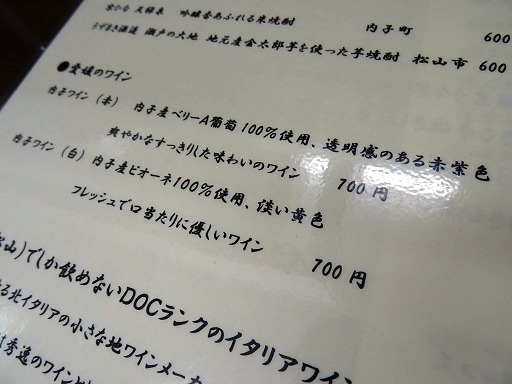 吟醸香あふれる米焼酎 内子町 600
うずまき海道 瀬戸の大地 地元産金太郎芋を使った芋焼酎 松山市 600
●愛媛のワイン
内子ワイン(赤) 内子産ベリーA葡萄100%使用、透明感のある赤紫色
爽やかなすっきりした味わいのワイン 700円
内子ワイン(白) 内子産ピオーネ100%使用、淡い黄色
フレッシュで口当たりに優しいワイン 700円
山)でしか飲めないDOCランクのイタリアワイン
る北イタリアの小さな地ワインメーカ
秀逸のワインと